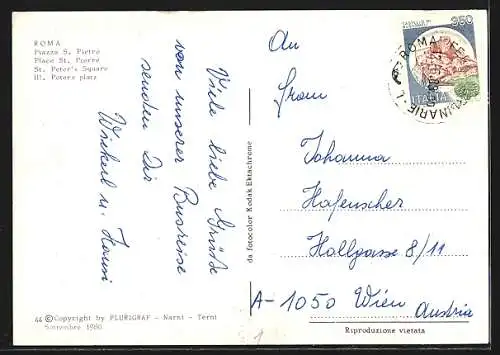 ROMA
Piazza S. Pietro
Place St. Pierre
St. Peter's Square
Hl. Peters platz
Viele liebe Grüße
von unserer Busreise
senden Dir
Wickerl u. Hansi
44 © Copyright by PLURIGRAF - Narni - Terni
Settembre 1980
da fotocolor Kodak Ektachrome
350
ROMA
ITALIA
An
Frau
Johanna
Hafenscher
Hollgasse 8/11
A-1050 Wien
Austria
Riproduzione vietata
1